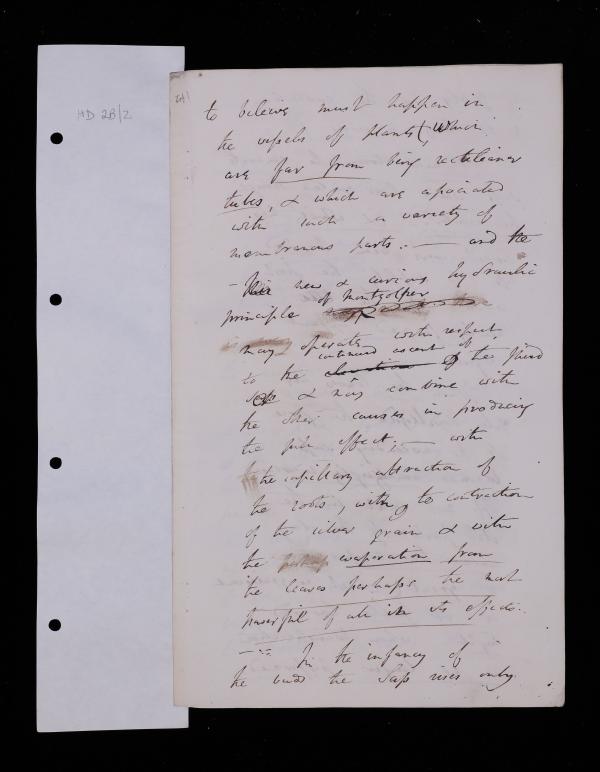 HD 2B/2
241
to beleive must happen in
the vessels of plants (, which
are far from being rectilinear
tubes, & which are associated
with such a variety of
membranous parts. — and the
— new & curious hydraulic
principle of Montgolfier
may operate with respect
continued ascent of
to the elevation of the fluid
& may combine with
the other causes in producing
the full effect; — with
the capillary attraction of
the roots, with the contraction
of the silver grain & with
the perhaps evaporation from
the leaves perhaps the most
powerful of all in its effects.
— In the infancy of
the buds the Sap rises only